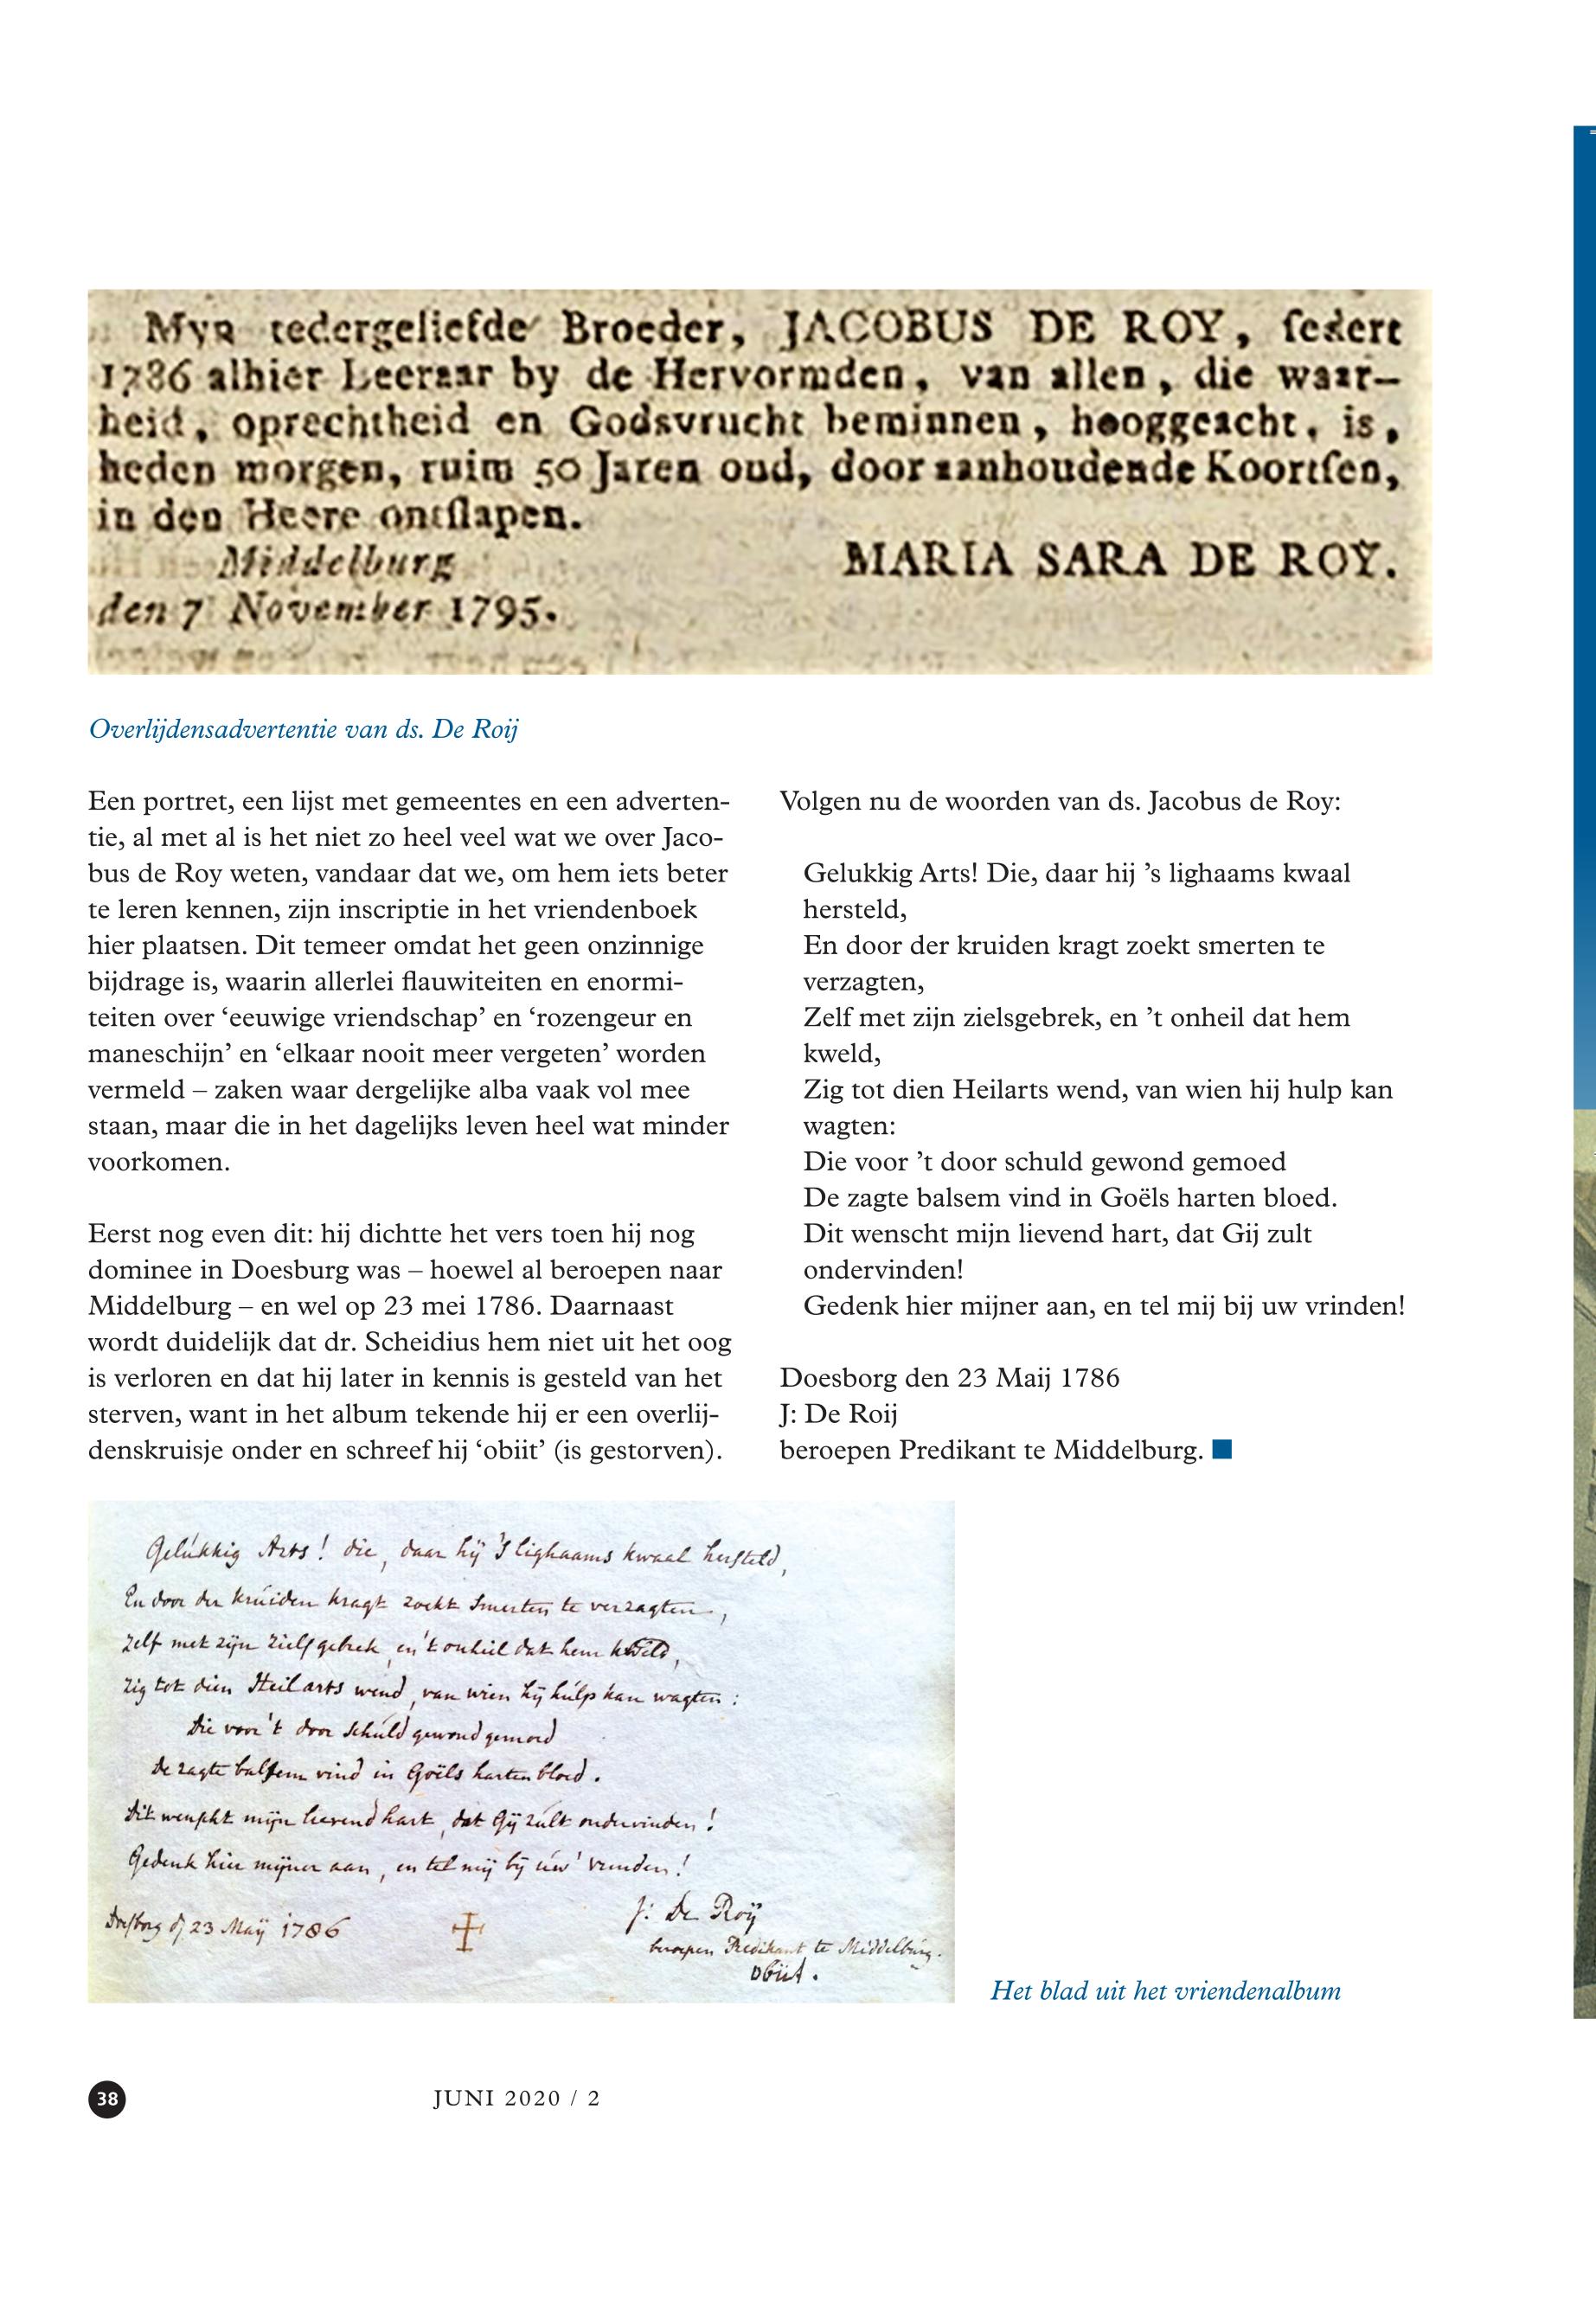 Myn tedergeliefde Broeder, JACOBUS DE ROY, ſedert
1786 alhier Leeraar by de Hervormden, van allen, die waar-
heid, oprechtheid en Godsvrucht beminnen, hooggeacht, is,
heden morgen, ruim 50 Jaren oud, door aanhoudende Koortſen,
in den Heere ontſlapen.
Middelburg
MARIA SARA DE ROY.
den 7 November 1795.
Overlijdensadvertentie van ds. De Roij
Een portret, een lijst met gemeentes en een adverten-
tie, al met al is het niet zo heel veel wat we over Jaco-
bus de Roy weten, vandaar dat we, om hem iets beter
te leren kennen, zijn inscriptie in het vriendenboek
hier plaatsen. Dit temeer omdat het geen onzinnige
bijdrage is, waarin allerlei flauwiteiten en enormi-
teiten over ‘eeuwige vriendschap’ en ‘rozengeur en
maneschijn’ en ‘elkaar nooit meer vergeten’ worden
vermeld – zaken waar dergelijke alba vaak vol mee
staan, maar die in het dagelijks leven heel wat minder
voorkomen.
Eerst nog even dit: hij dichtte het vers toen hij nog
dominee in Doesburg was – hoewel al beroepen naar
Middelburg – en wel op 23 mei 1786. Daarnaast
wordt duidelijk dat dr. Scheidius hem niet uit het oog
is verloren en dat hij later in kennis is gesteld van het
sterven, want in het album tekende hij er een overlij-
denskruisje onder en schreef hij ‘obiit’ (is gestorven).
Volgen nu de woorden van ds. Jacobus de Roy:
Gelukkig Arts! Die, daar hij ’s lighaams kwaal
hersteld,
En door der kruiden kragt zoekt smerten te
verzagten,
Zelf met zijn zielsgebrek, en ’t onheil dat hem
kweld,
Zig tot dien Heilarts wend, van wien hij hulp kan
wagten:
Die voor ’t door schuld gewond gemoed
De zagte balsem vind in Goëls harten bloed.
Dit wenscht mijn lievend hart, dat Gij zult
ondervinden!
Gedenk hier mijner aan, en tel mij bij uw vrinden!
Doesborg den 23 Maij 1786
J: De Roij
beroepen Predikant te Middelburg.
Gelukkig Arts! die, daar hij 's lighaams kwaal herſteld,
En door der kruiden kragt zoekt smerten te verzagten,
Zelf met zijn zielſgebrek, en 't onheil dat hem kweld,
Zig tot dien Heilarts wend, van wien hij hulp kan wagten:
Die voor 't door schuld gewond gemoed
De zagte balſem vind in Goëls harten bloed.
Dit wenſcht mijn lievend hart, dat Gij zult ondervinden!
Gedenk hier mijner aan, en tel mij bij uw' vrinden!
J: De Roij
Doeſborg d 23 Maij 1786
beroepen Predikant te Middelburg.
obiit.
Het blad uit het vriendenalbum
38
JUNI 2020 / 2